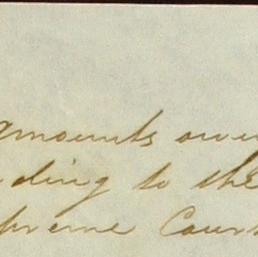 amounts owe
ding to the
preme Cour